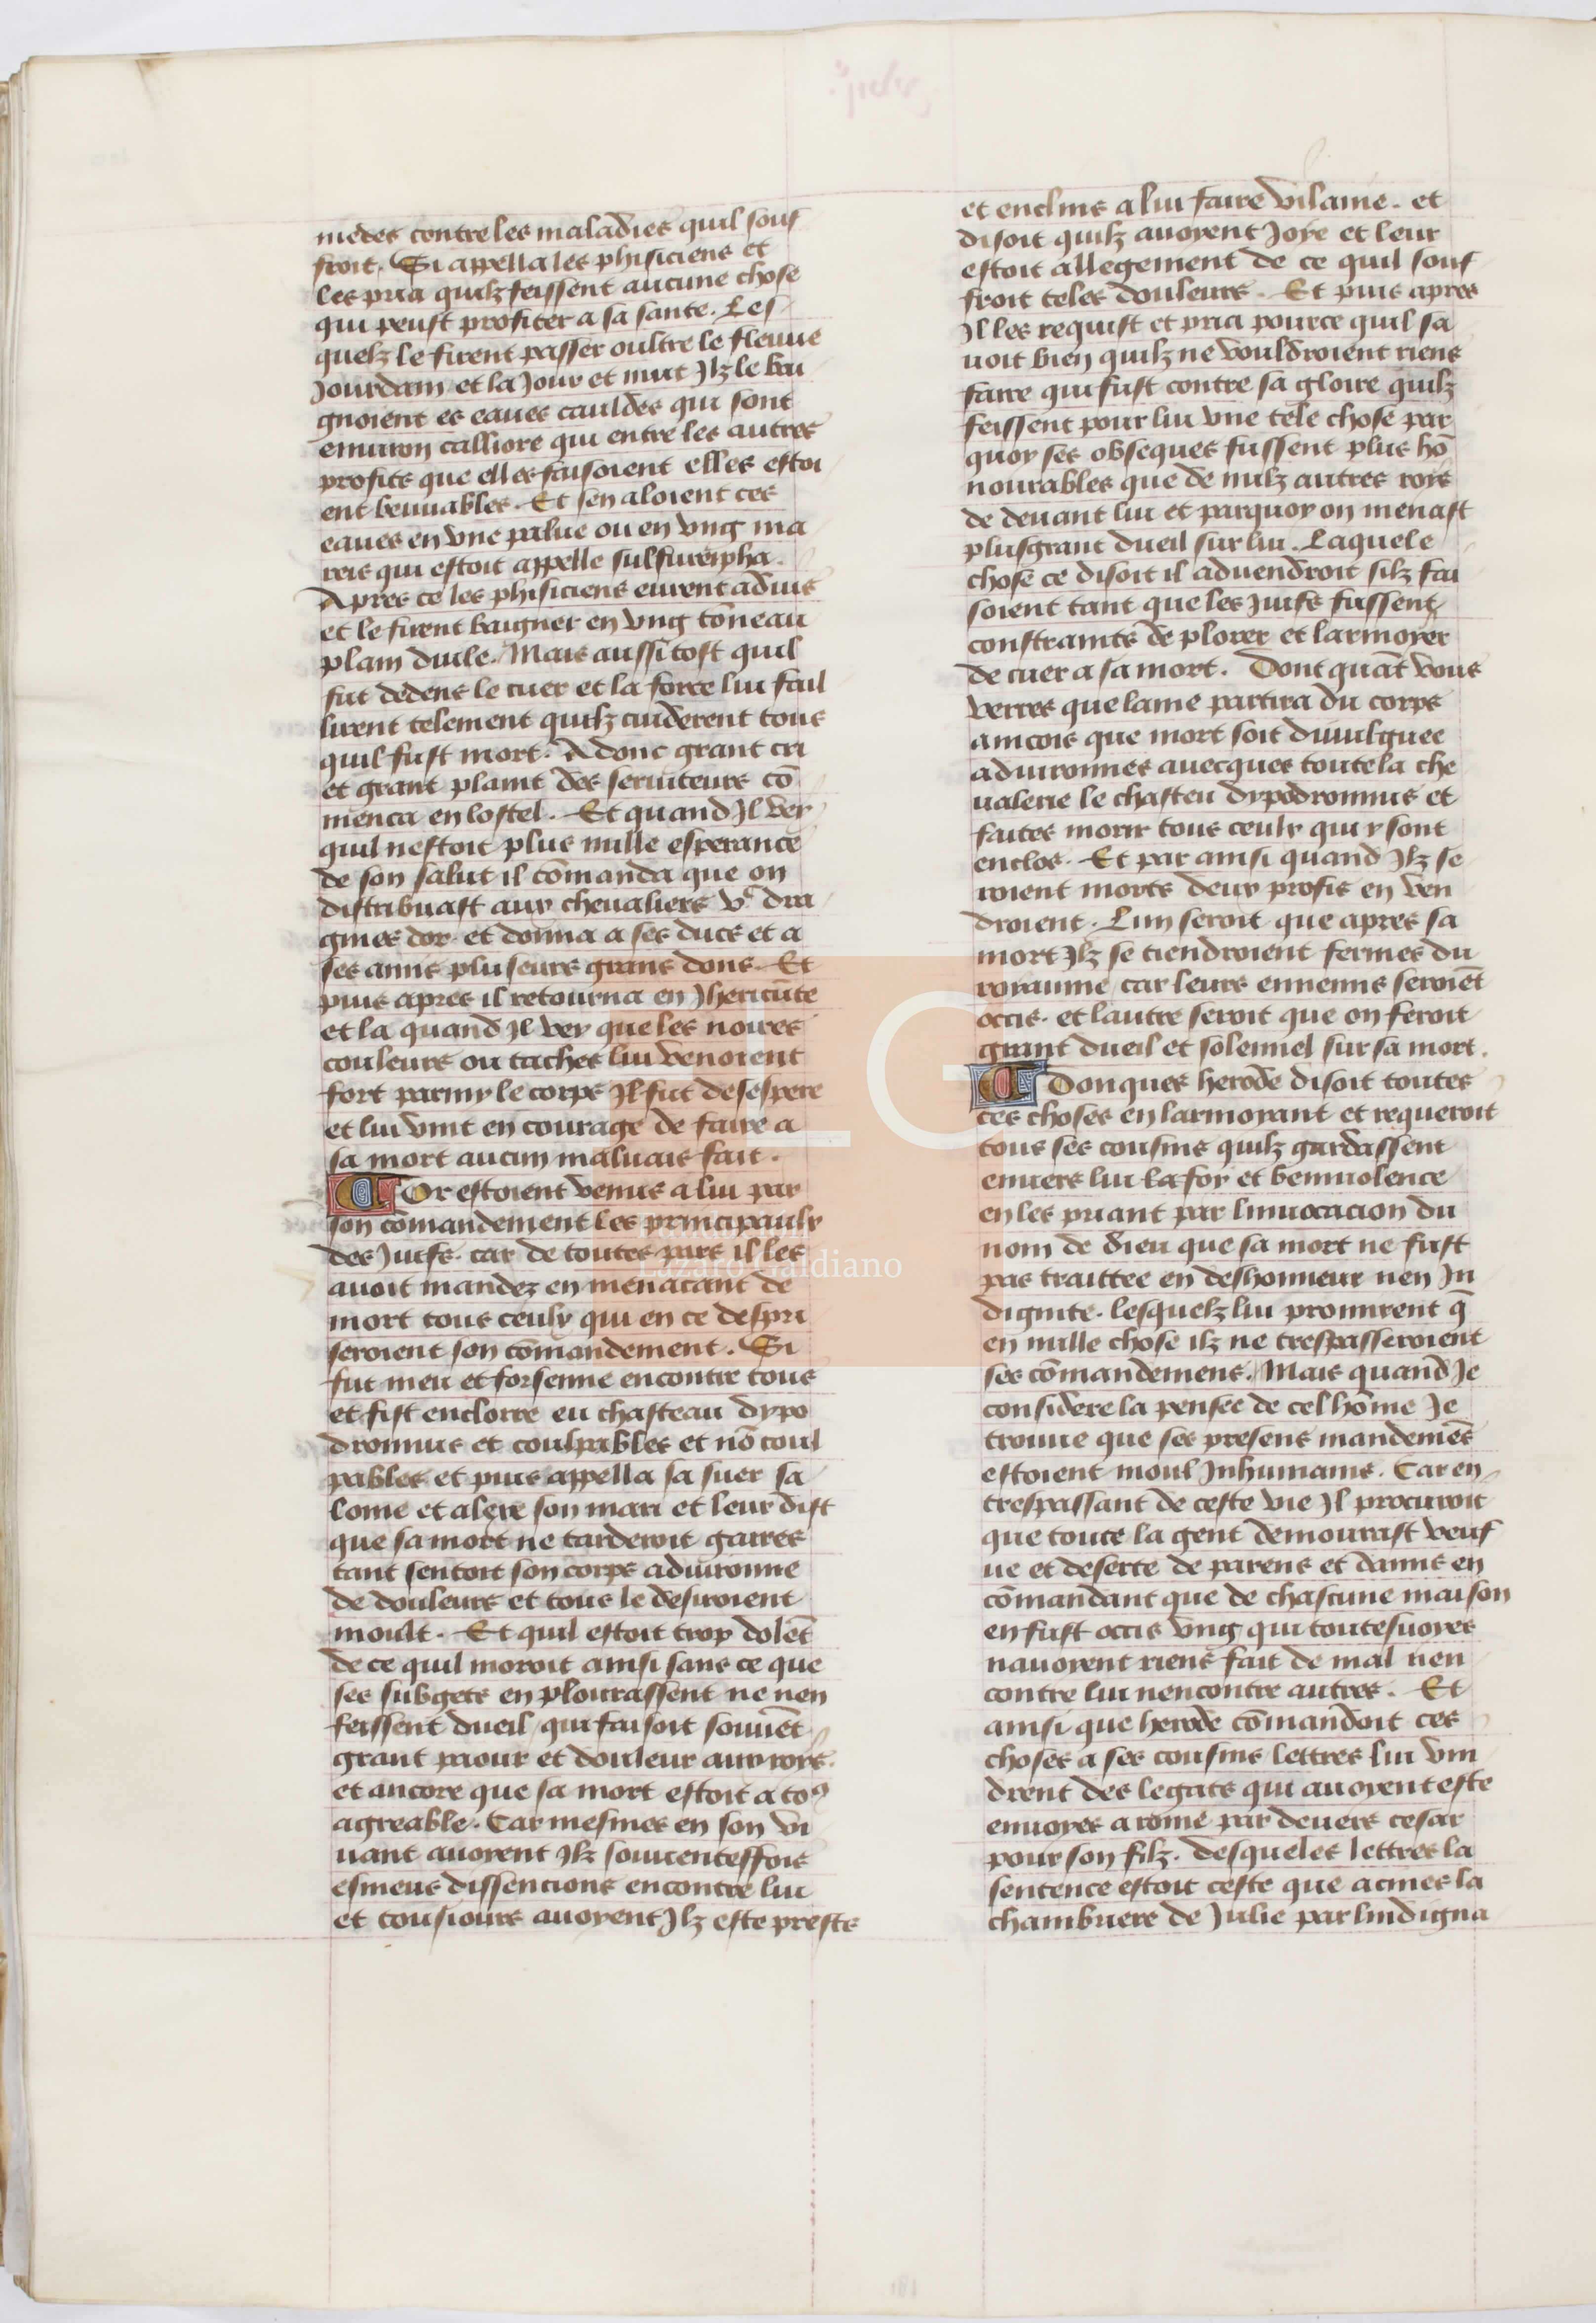 medes contre les maladies quil souf
froit. Si appella les phisiciens et
les pria quilz feissent aucune chose
qui peust profiter a sa sante. Les
quelz le firent passer oultre le fleuue
Jourdain et la Jour et nuit Jlz le bai
gnoient es eaues cauldes qui sont
enuiron calliore qui entre les autres
profits que elles faisoient elles estoi
ent beuuables. Et sen aloient ces
eaues en vne palue ou en vng ma
reis qui estoit appelle
Apres ce les phisiciens eurent aduis
et le firent baigner en vng tōneau
plain duile. Mais aussi tost quil
fut dedens le cuer et la force lui fail
lirent telement quilz cuiderent tous
quil fust mort. Adonc grant cri
et grant plaint des seruiteurs cō
menca en lostel. Et quand Jl vey
quil nestoit plus nulle esperance
de son salut il cōmanda que on
distribuast aux cheualiers vͨ dra
gmes dor. et donna a ses ducs et a
ses amis pluseurs grans dons. Et
puis apres il retourna en Jhericūte
et la quand Jl vey que les noires
couleurs ou taches lui venoient
fort parmy le corps Jl fut desespere
et lui vint en courage de faire a
sa mort aucun maluais fait.
Or estoient venus a lui par
son cōmandement les principaulx
des Juifs. car de toutes pars il les
auoit mandez en menacant de
mort tous ceulx qui en ce despri
seroient son cōmandement. Si
fut meu et forsenne encontre tous
et fist enclorre eu chasteau dypo
dromus et coulpables et nō coul
pables et puis appella sa suer sa
lome et alexe son mari et leur dist
que sa mort ne tarderoit gaires
tant sentoit son corps aduironne
de douleurs et tous le desiroient
moult. Et quil estoit trop dolēt
de ce quil moroit ainsi sans ce que
ses subgets en plourassent ne nen
feissent dueil / qui faisoit souuēt
grant paour et douleur aux roys.
et ancore que sa mort estoit a toꝰ
agreable. Car mesmes en son vi
uant auoyent Jlz souuenteffois
esmeus dissencions encontre lui
et tousiours auoyent Jlz este prests
et enclins a lui faire vilanie. et
disoit quilz auoyent Joye et leur
estoit allegement de ce quil souf
froit teles douleurs. Et puis apres
Jl les requist et pria pource quil sa
uoit bien quilz ne vouldroient riens
faire qui fust contre sa gloire quilz
feissent pour lui vne tele chose par
quoy ses obseques fussent plus hō
nourables que de nulz autres roys
de deuant lui et parquoy on menast
plusgrant dueil sur lui. Laquele
chose ce disoit il aduendroit silz fai
soient tant que les Juifs fussent
constraints de plorer et larmoyer
de cuer a sa mort. Dont quāt vous
verres que lame partira du corps
aincois que mort soit diuulguee
aduironnes auecques toute la che
ualerie le chasteu dypodromus et
faites morir tous ceulx qui y sont
enclos. Et par ainsi quand Jlz se
roient morts deux profis en ven
droient. Lun seroit que apres sa
mort Jlz se tiendroient fermes du
royaume / car leurs ennemis seroiēt
occis. et lautre seroit que on feroit
grant dueil et solennel sur sa mort.
ADonques herode disoit toutes
ces choses en larmoyant et requeroit
tous ses cousins quilz gardassent
enuers lui la foy et beniuolence
en les priant par linuocacion du
nom de dieu que sa mort ne fust
pas traittee en deshonneur nen In
dignite. lesquelz lui promirent q̄
en nulle chose ilz ne trespasseroient
ses cōmandemens. Mais quand Je
considere la pensee de cel hōme Je
treuue que ses presens mandemēs
estoient moul Jnhumains. Car en
trespassant de ceste vie Jl procuroit
que toute la gent demourast veuf
ue et deserte de parens et damis en
cōmandant que de chascune maison
en fust occis vng qui toutesuoyes
nauoyent riens fait de mal nen
contre lui nencontre autres. Et
ainsi que herode cōmandoit ces
choses a ses cousins lettres lui vin
drent des legats qui auoyent este
enuoyes a rome par deuers cesar
pour son filz. desqueles lettres la
sentence estoit ceste que acmes la
chambriere de Julie par lindigna
LG
Lázaro Galdiano